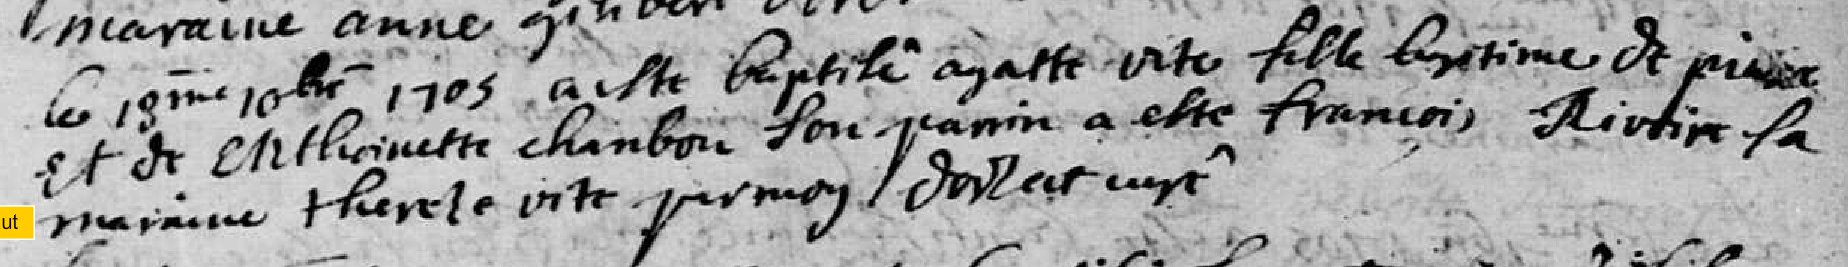 maraine anne
le 13me 10bre 1705 a este baptisé agatte vite fille legitime de pierre
Et de Anthoinette chambon son parrin a este francois Rivoire sa
maraine therese vite par moy curé
ut